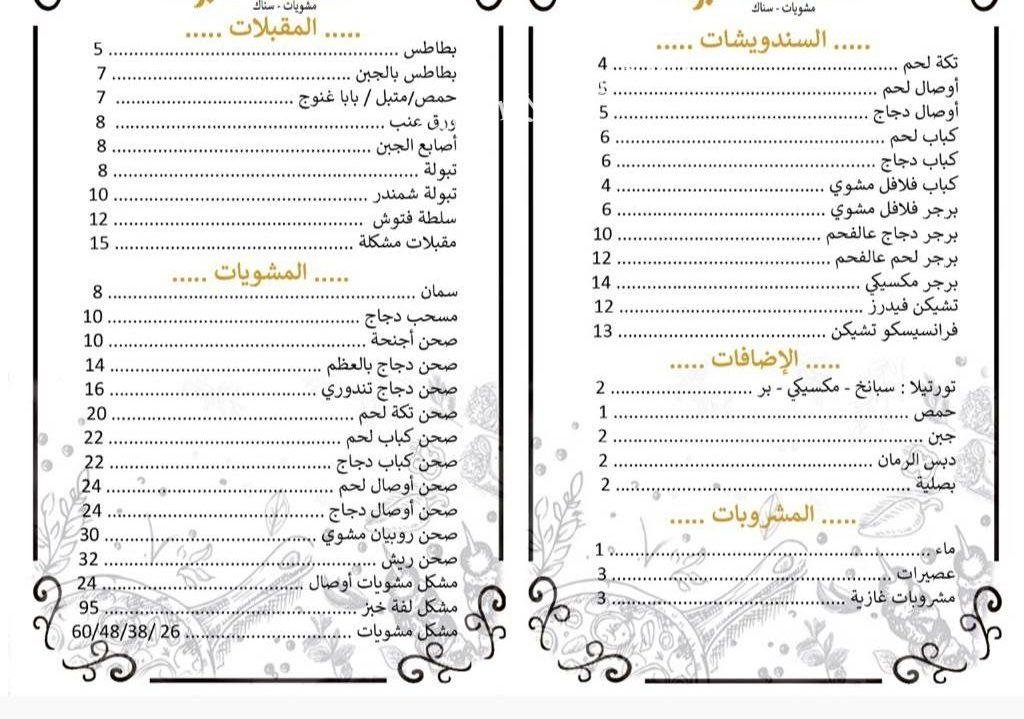 مشويات - سناك
..... السندويشات .....
تكة لحم ........ 4
أوصال لحم ........ 5
أوصال دجاج ........ 5
كباب لحم ........ 6
كباب دجاج ........ 6
كباب فلافل مشوي ........ 4
برجر فلافل مشوي ........ 6
برجر دجاج عالفحم ........ 10
برجر لحم عالفحم ........ 12
برجر مكسيكي ........ 14
تشيكن فيدرز ........ 12
فرانسيسكو تشيكن ........ 13
..... الإضافات .....
تورتيلا : سبانخ - مكسيكي - بر ........ 2
حمص ........ 1
جبن ........ 2
دبس الرمان ........ 2
بصلية ........ 2
..... المشروبات .....
ماء ........ 1
عصيرات ........ 3
مشروبات غازية ........ 3
مشويات - سناك
..... المقبلات .....
بطاطس ........ 5
بطاطس بالجبن ........ 7
حمص/متبل / بابا غنوج ........ 7
ورق عنب ........ 8
أصابع الجبن ........ 8
تبولة ........ 8
تبولة شمندر ........ 10
سلطة فتوش ........ 12
مقبلات مشكلة ........ 15
..... المشويات .....
سمان ........ 8
مسحب دجاج ........ 10
صحن أجنحة ........ 10
صحن دجاج بالعظم ........ 14
صحن دجاج تندوري ........ 16
صحن تكة لحم ........ 20
صحن كباب لحم ........ 22
صحن كباب دجاج ........ 22
صحن أوصال لحم ........ 24
صحن أوصال دجاج ........ 24
صحن روبيان مشوي ........ 30
صحن ريش ........ 32
مشكل مشويات أوصال ........ 24
مشكل لفة خبز ........ 95
مشكل مشويات ........ 26 /60/48/38